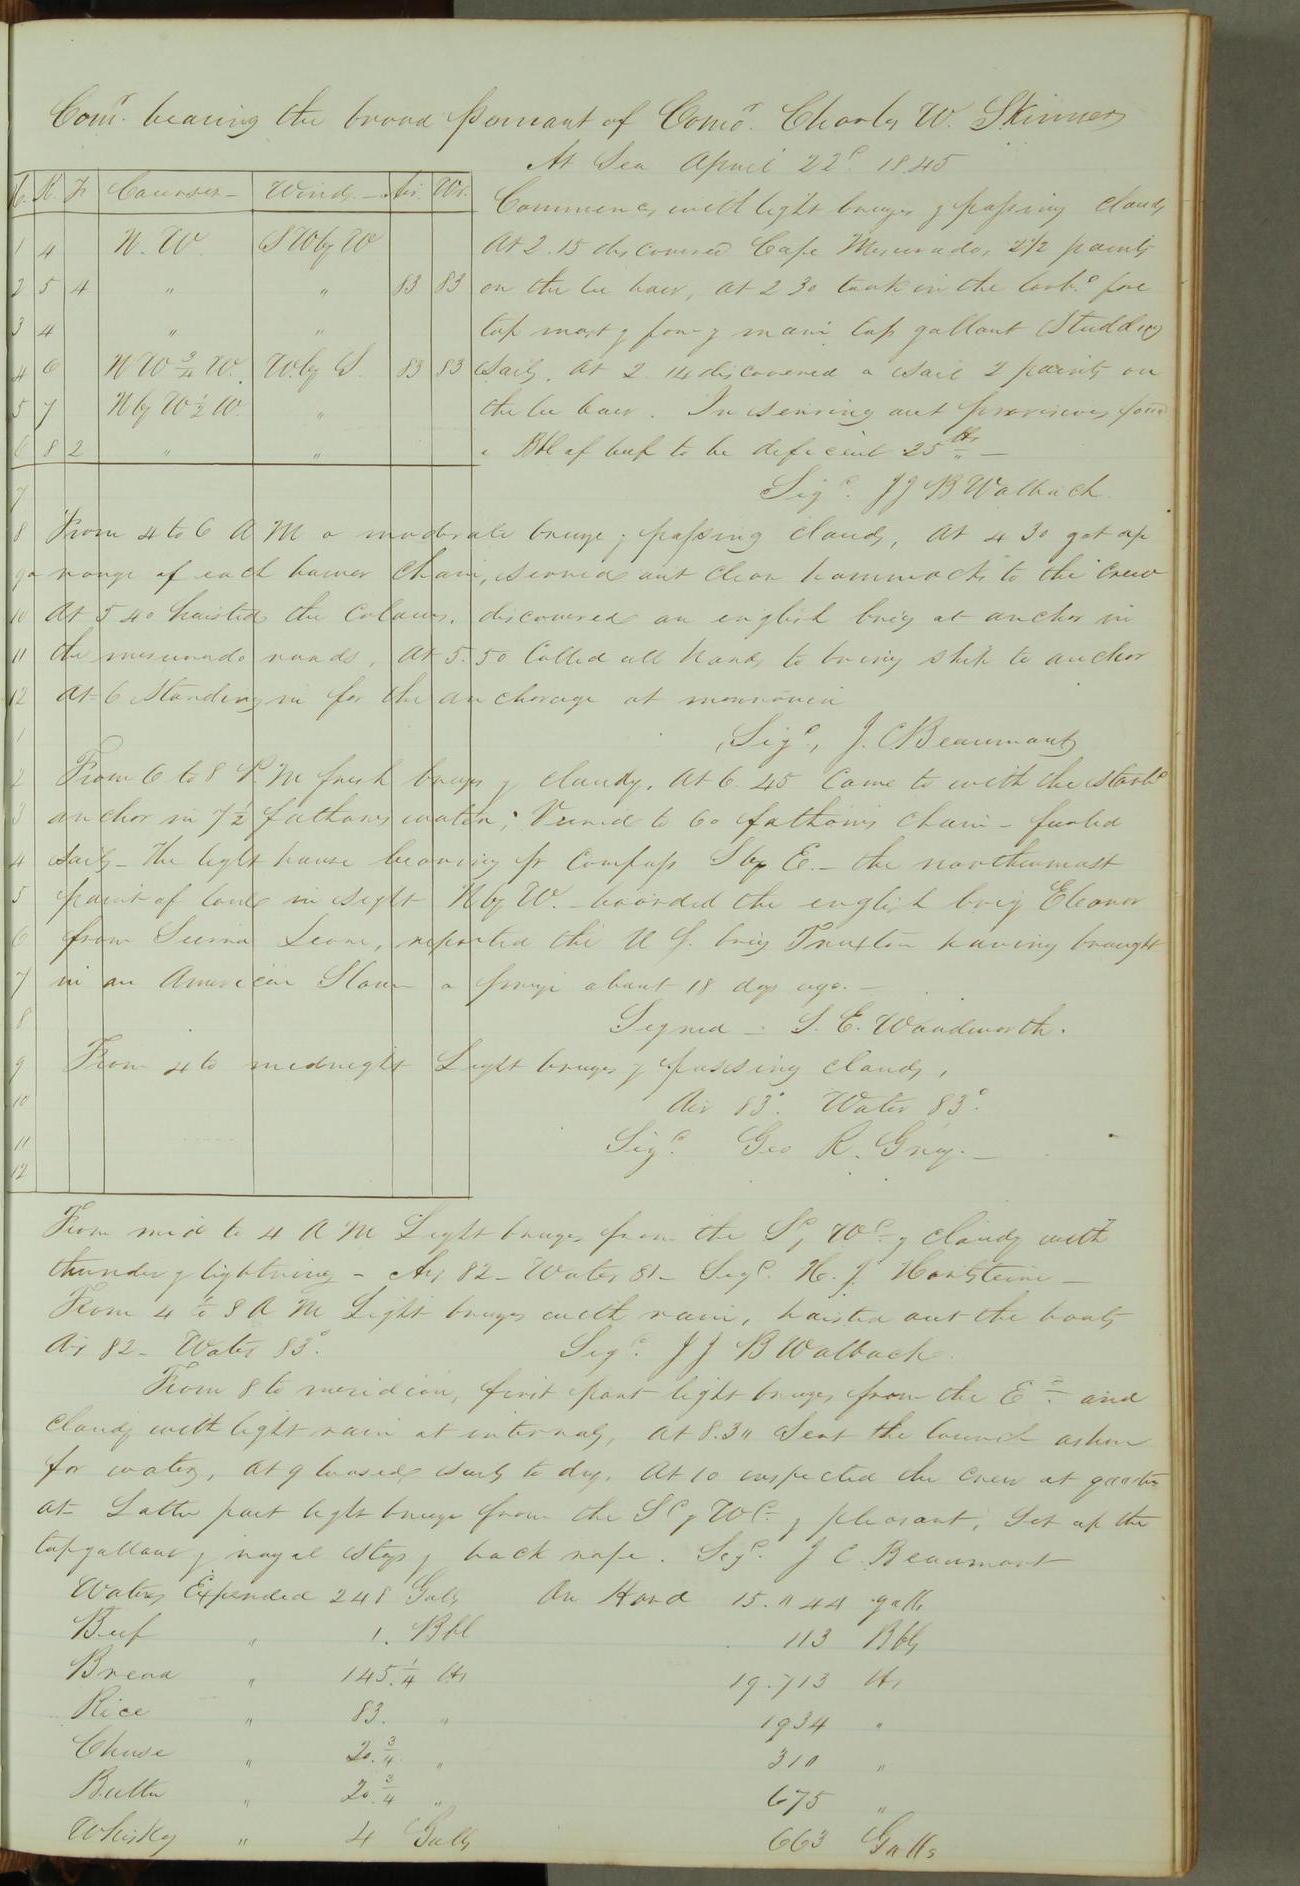 Comr. bearing the broad Pennant of Como. Charles W. Skinner
At Sea April 22d. 1845
H. K. F. Courses – Winds. – Air. Wr.
1 4 N. W. S W by W
2 5 4 " " 83 83
3 4 " "
4 6 N W 3/4 W. W. by S. 83 83
5 7 N by W 1/2 W. "
6 8 2 " "
7
8
9
10
11
12
1
2
3
4
5
6
7
8
9
10
11
12
Commences with light breezes & passing clouds
At 2.15 discovered Cape Mesurado, 2 1/2 points
on the lee bow, at 2 30 took in the larbd fore
top mast & fore & main top gallant Studding
Sails. At 2. 14 discovered a Sail 2 points on
the lee bow. In serving out provisions found
a Bbl of beef to be deficient 25 lbs –
Sigd. J J B Walbach
From 4 to 6 A M a moderate breeze & passing clouds, at 4 30 got up
range of each bower chain, served out clean hammocks to the crew
At 5 40 hoisted the colours. discovered an english brig at anchor in
the mesurado roads. At 5. 50 Called all hands to bring ship to anchor
At 6 standing in for the anchorage at monrovia
Sigd, J. C Beaumont
From 6 to 8 P. M fresh breezes & cloudy. At 6. 45 Came to with the starbd
anchor in 7 1/2 fathoms water; Veered to 60 fathoms chain – furled
sails – The light house bearing pr Compass S by E. – the northernmost
point of land in sight N by W. – boarded the english brig Eleanor
from Sierra Leone, reported the U S. brig Truxton having brought
in an American Slaver a prize about 18 days ago. –
Signed – S. E. Woodworth.
From 4 to midnight Light breezes & passing clouds,
Air 83°. Water 83°.
Sigd. Geo R. Gray. –
From mid to 4 A M Light breezes from the Sd & Wd & cloudy with
thunder & lightning – Air 82 – Water 81 – Sigd. H. J. Hartstene –
From 4 to 8 A M Light breezes with rain, hoisted out the boats
Air 82 – Water 83°. Sigd. J J B Walbach
From 8 to meridian, first part light breezes from the Ed. and
cloudy with light rain at intervals, at 8.30 Sent the launch ashore
for water, at 9 loosed sails to dry. At 10 inspected the crew at quarters
at – Latter part light breeze from the Sd & Wd & pleasant, Set up the
topgallant & royal stays & back rope. Sigd. J C. Beaumont
Water Expended 248 Galls On Hand 15. " 44 galls
Beef " 1. Bbl 113 Bbls
Bread " 145. 1/4 lbs 19.713 lbs
Rice " 83. " 1934 "
Cheese " 20. 3/4 " 310 "
Butter " 20. 3/4 " 675 "
Whisky " 4 Galls 663 Galls